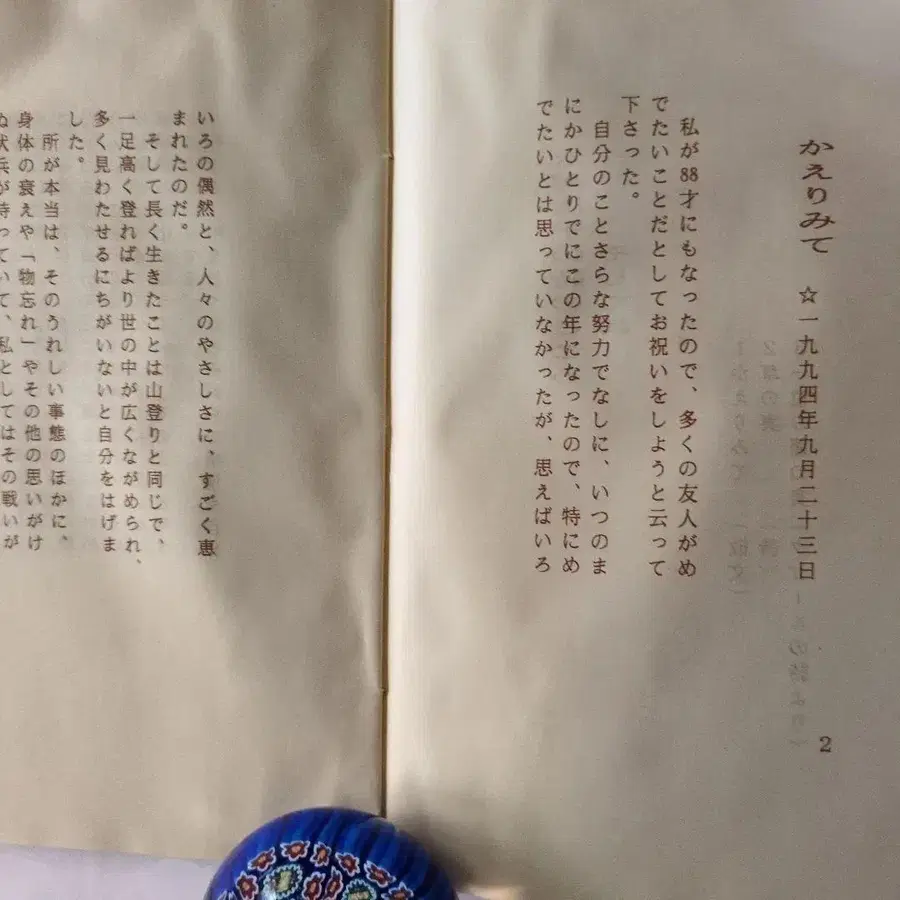 かえりみて ☆一九九四年九月二十三日
私が88才にもなったので、多くの友人がめ
でたいことだとしてお祝いをしようと云って
下さった。
自分のことさらな努力でなしに、いつのま
にかひとりでにこの年になったので、特にめ
でたいとは思っていなかったが、思えばいろ
2
いろの偶然と、人々のやさしさに、すごく恵
まれたのだ。
そして長く生きたことは山登りと同じで、
一足高く登ればより世の中が広くながめられ、
多く見わたせるにちがいないと自分をはげま
した。
所が本当は、そのうれしい事態のほかに、
身体の衰えや「物忘れ」やその他の思いがけ
ぬ伏兵が待っていて、私としてはその戦いが